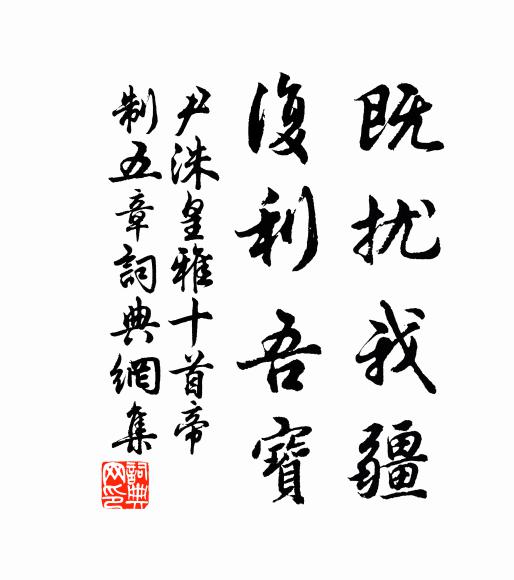 既扰我疆
復利吾寶
尹洙皇雅十首帝
制五章詞典網集
詞典网印